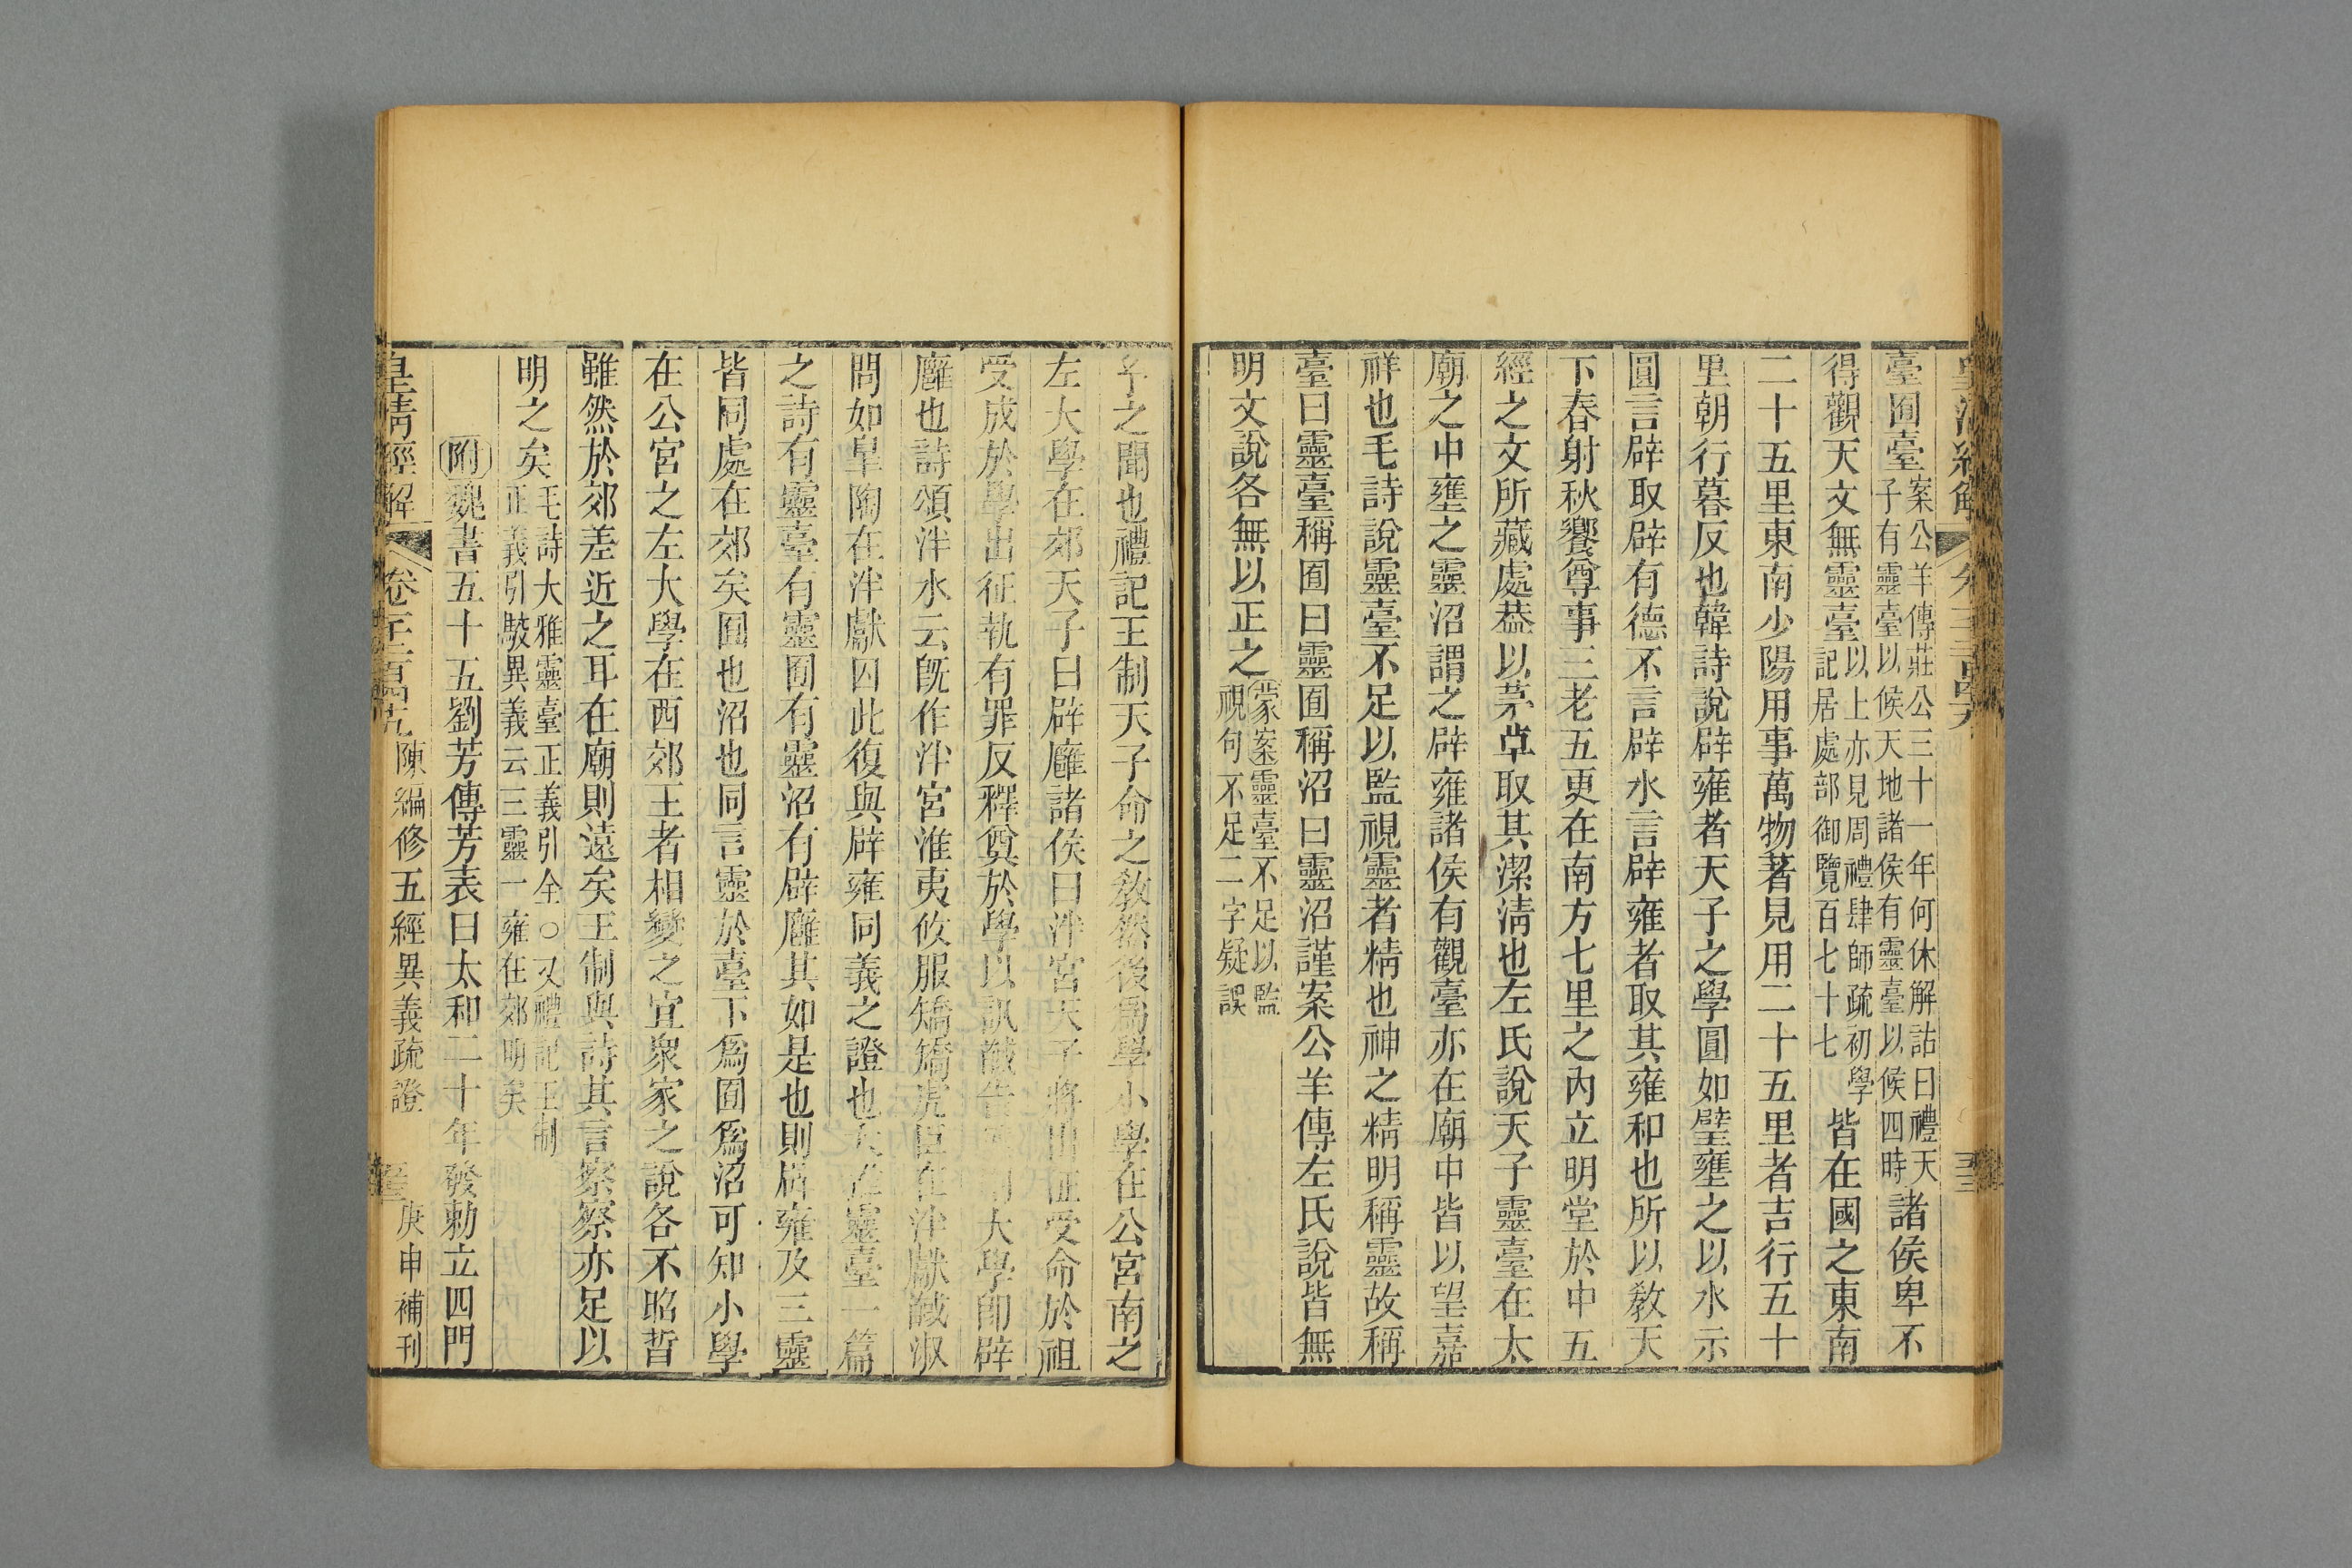 臺囿臺案公羊傳莊公三十一年何休解詁曰禮天子有靈臺以候天地諸侯有靈臺以候四時諸侯卑不
得觀天文無靈臺以上亦見周禮肆師疏初學記居處部御覽百七十七皆在國之東南
二十五里東南少陽用事萬物著見用二十五里者吉行五十
里朝行暮反也韓詩說辟雍者天子之學圓如璧壅之以水示
圓言辟取辟有德不言辟水言辟雍者取其雍和也所以敎天
下春射秋饗尊事三老五更在南方七里之內立明堂於中五
經之文所藏處葢以茅草取其潔淸也左氏說天子靈臺在太
廟之中壅之靈沼謂之辟雍諸侯有觀臺亦在廟中皆以望嘉
祥也毛詩說靈臺不足以監視靈者精也神之精明稱靈故稱
臺曰靈臺稱囿曰靈囿稱沼曰靈沼謹案公羊傳左氏說皆無
明文說各無以正之蒙案靈臺不足以監視句不足二字疑誤
之聞也禮記王制天子命之敎然後爲學小學在公宮南之
左大學在郊天子曰辟廱諸侯曰泮宮天子將出征受命於祖
受成於學出征執有罪反釋奠於學以訊馘告大學卽辟
廱也詩頌泮水云旣作泮宮淮夷攸服矯矯虎臣在泮獻馘淑
問如皐陶在泮獻囚此復與辟雍同義之證也大雅靈臺一篇
之詩有靈臺有靈囿有靈沼有辟廱其如是也則辟雍及三靈
皆同處在郊矣囿也沼也同言靈於臺下爲囿爲沼可知小學
在公宮之左大學在西郊王者相變之宜眾家之說各不昭晢
雖然於郊差近之耳在廟則遠矣王制與詩其言察察亦足以
明之矣毛詩大雅靈臺正義引全○又禮記王制正義引駮異義云三靈一雍在郊明矣
附魏書五十五劉芳傳芳表曰太和二十年發勅立四門
皇淸經解 陳編修五經異義疏證 庚申補刊